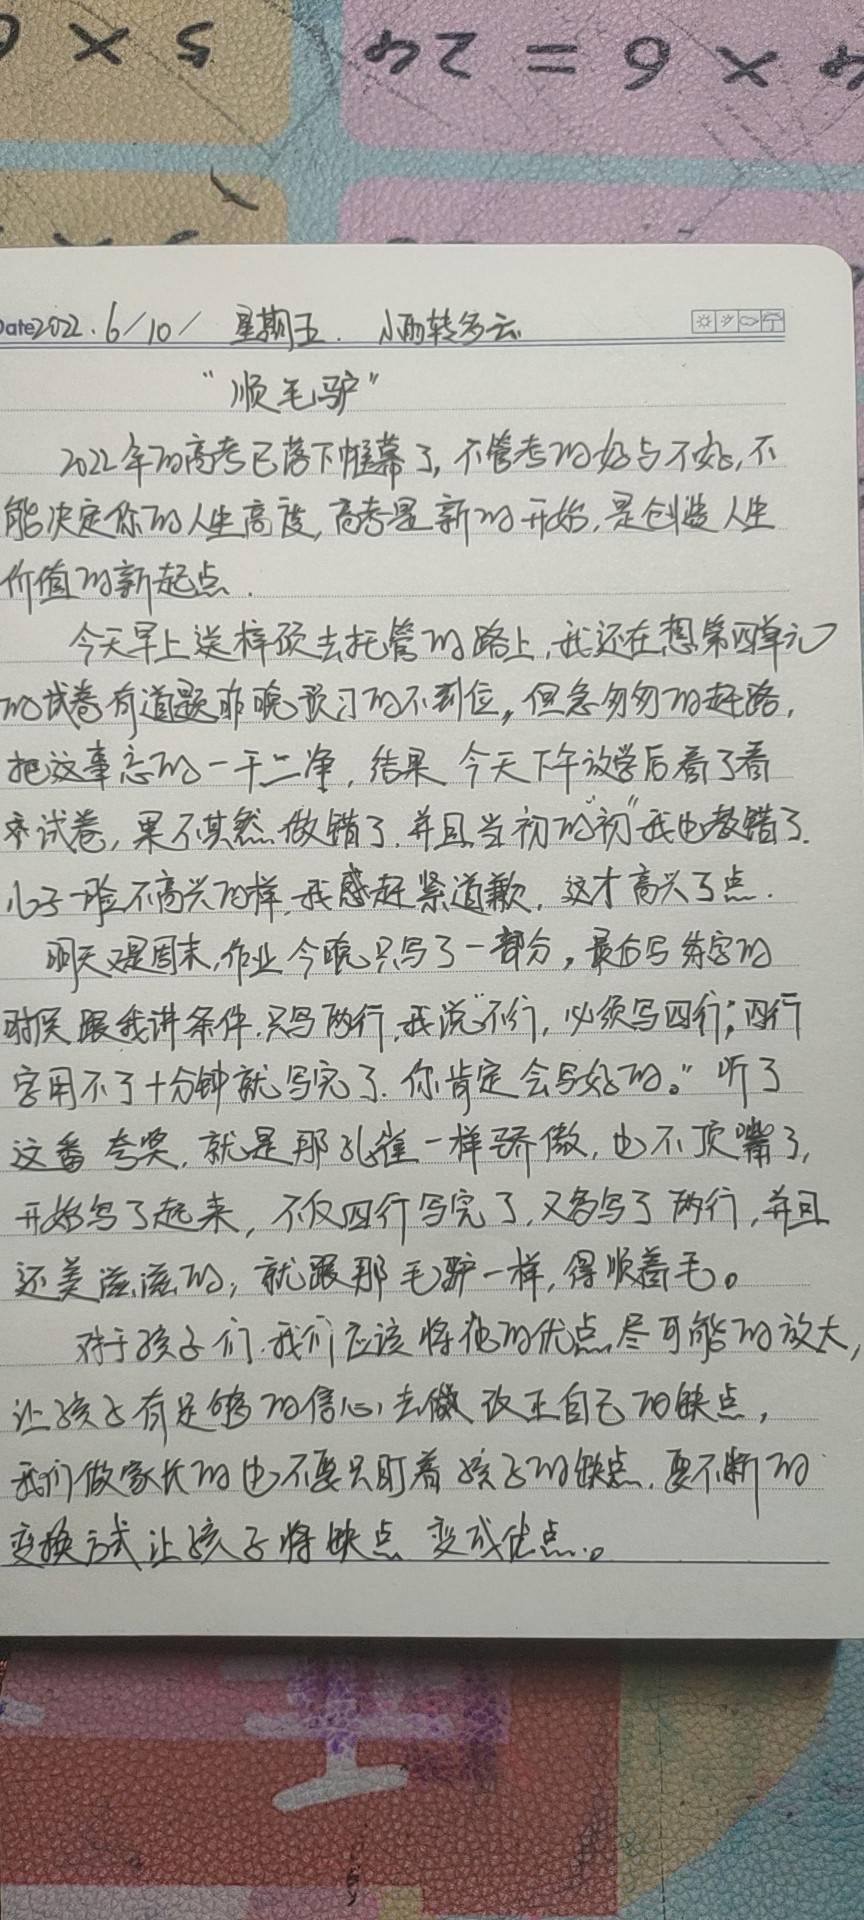 5 × 6
4 × 6 = 24
Date 2022.6/10/ 星期五. 小雨转多云
“顺毛驴”
2022年的高考已落下帷幕了,不管考的好与不好,不
能决定你的人生高度,高考是新的开始,是创造人生
价值的新起点.
今天早上送梓硕去托管的路上,我还在想第四单元
的试卷有道题昨晚预习的不到位,但急匆匆的赶路,
把这事忘的一干二净,结果 今天下午放学后看了看
试卷,果不其然做错了.并且当初的“初”我也教错了.
儿子一脸不高兴的样,我感赶紧道歉,这才高兴了点.
明天又是周末,作业今晚只写了一部分,最后写练字的
时候跟我讲条件.只写两行,我说“不行,必须写四行;四行
字用不了十分钟就写完了.你肯定会写好的。”听了
这番夸奖,就是那孔雀一样骄傲,也不顶嘴了,
开始写了起来,不仅四行写完了,又多写了两行,并且
还美滋滋的,就跟那毛驴一样,得顺着毛。
对于孩子们.我们应该将他的优点尽可能的放大,
让孩子有足够的信心,去做改正自己的缺点,
我们做家长的也不要只盯着孩子的缺点.要不断的
变换方式让孩子将缺点变成优点.。